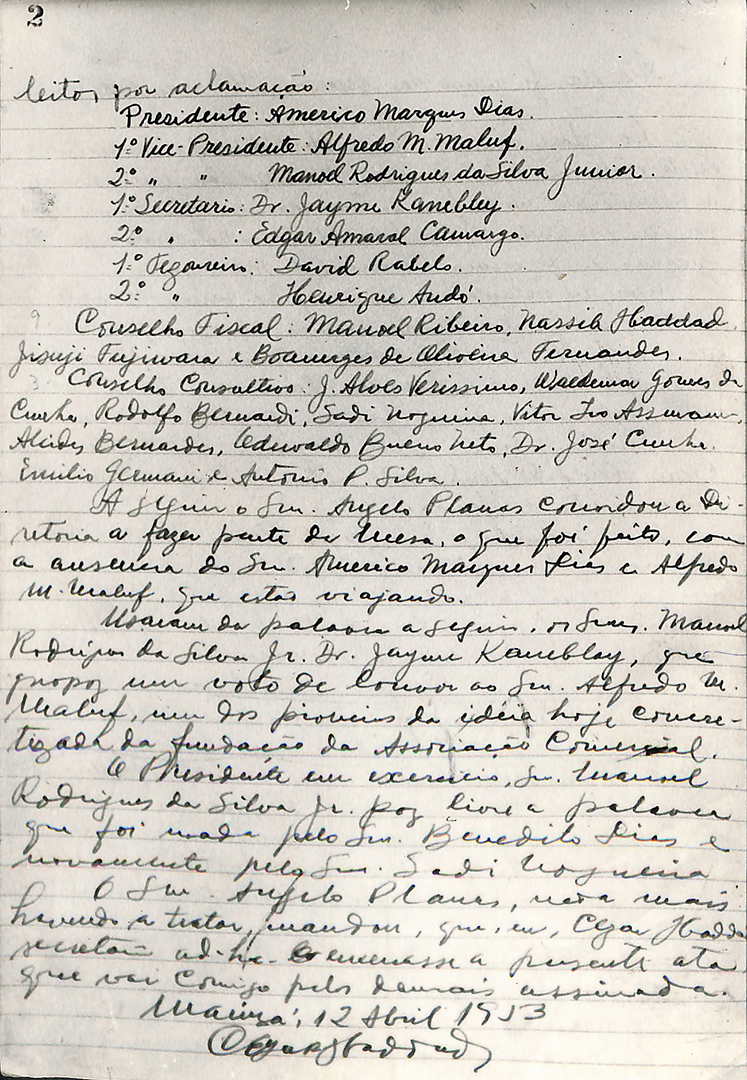 2
leitos por aclamação:
Presidente: Americo Marques Dias.
1º Vice-Presidente: Alfredo M. Maluf.
2º " " Manoel Rodrigues da Silva Junior.
1º Secretario: Dr. Jayme Kanebley.
2º " : Edgar Amaral Camargo.
1º Tezoureiro: David Rabelo.
2º " Henrique Andó.
Conselho Fiscal: Manoel Ribeiro, Nassib Haddad,
Fujiwara e Boanerges de Oliveira Fernandes.
Conselho Consultivo: J. Alves Verissimo, Waldemar Gomes da
Cunha, Rodolfo Bernardi, Sadi Nogueira, Vitor
Alcides Bernardes, Bueno Neto, Dr. José Cunha,
Emilio Germani e Antonio P. Silva.
A seguir o Snr. Angelo Planas convidou a Di-
retoria a fazer parte da mesa, o que foi feito, com
a ausencia do Snr. Americo Marques Dias e Alfredo
M. Maluf, que estão viajando.
Usaram da palavra a seguir, os Snrs. Manoel
Rodrigues da Silva Jr. Dr. Jayme Kanebley, que
propoz um voto de louvor ao Snr. Alfredo M.
Maluf, um dos pioneiros da idéia hoje concre-
tizada da fundação da Associação Comercial.
O Presidente em exercicio, Snr. Manoel
Rodrigues da Silva Jr. poz livre a palavra
que foi usada pelo Snr. Benedito Dias e
novamente pelo Snr. Sadi Nogueira
O Snr. Angelo Planas, nada mais
havendo a tratar, mandou, que, eu, Cezar Haddad
secretario ad-hoc a presente ata
que vai comigo pelos demais assinada.
12 Abril 1953
Cezar Haddad